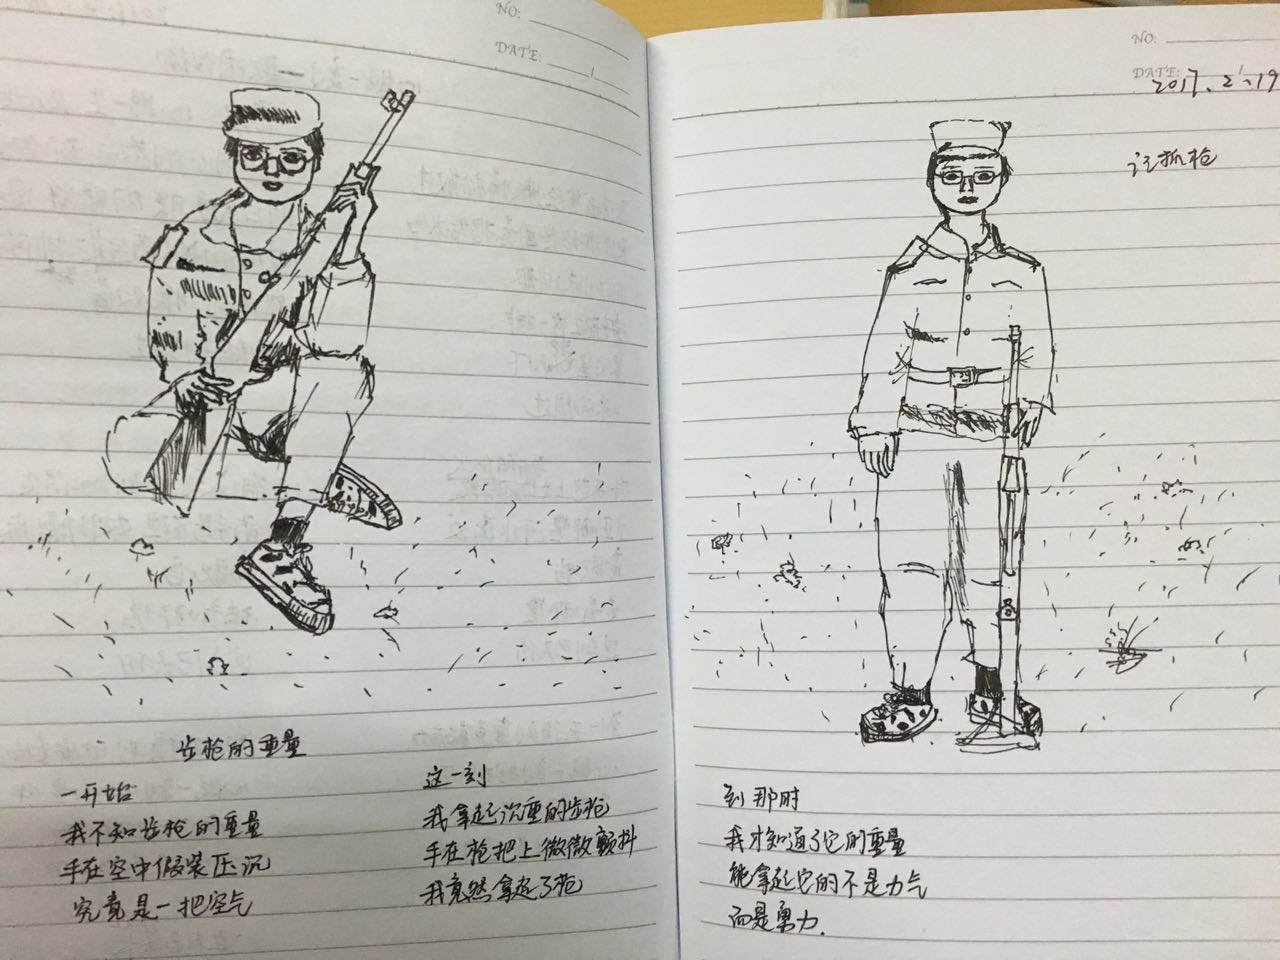 NO:
DATE:
步枪的重量
一开始
我不知步枪的重量
手在空中假装压沉
究竟是一把空气
这一刻
我拿起沉重的步枪
手在枪把上微微颤抖
我竟然拿起了枪
NO:
DATE:
2017.2.19
记抓枪
到那时
我才知道了它的重量
能拿起它的不是力气
而是勇力.